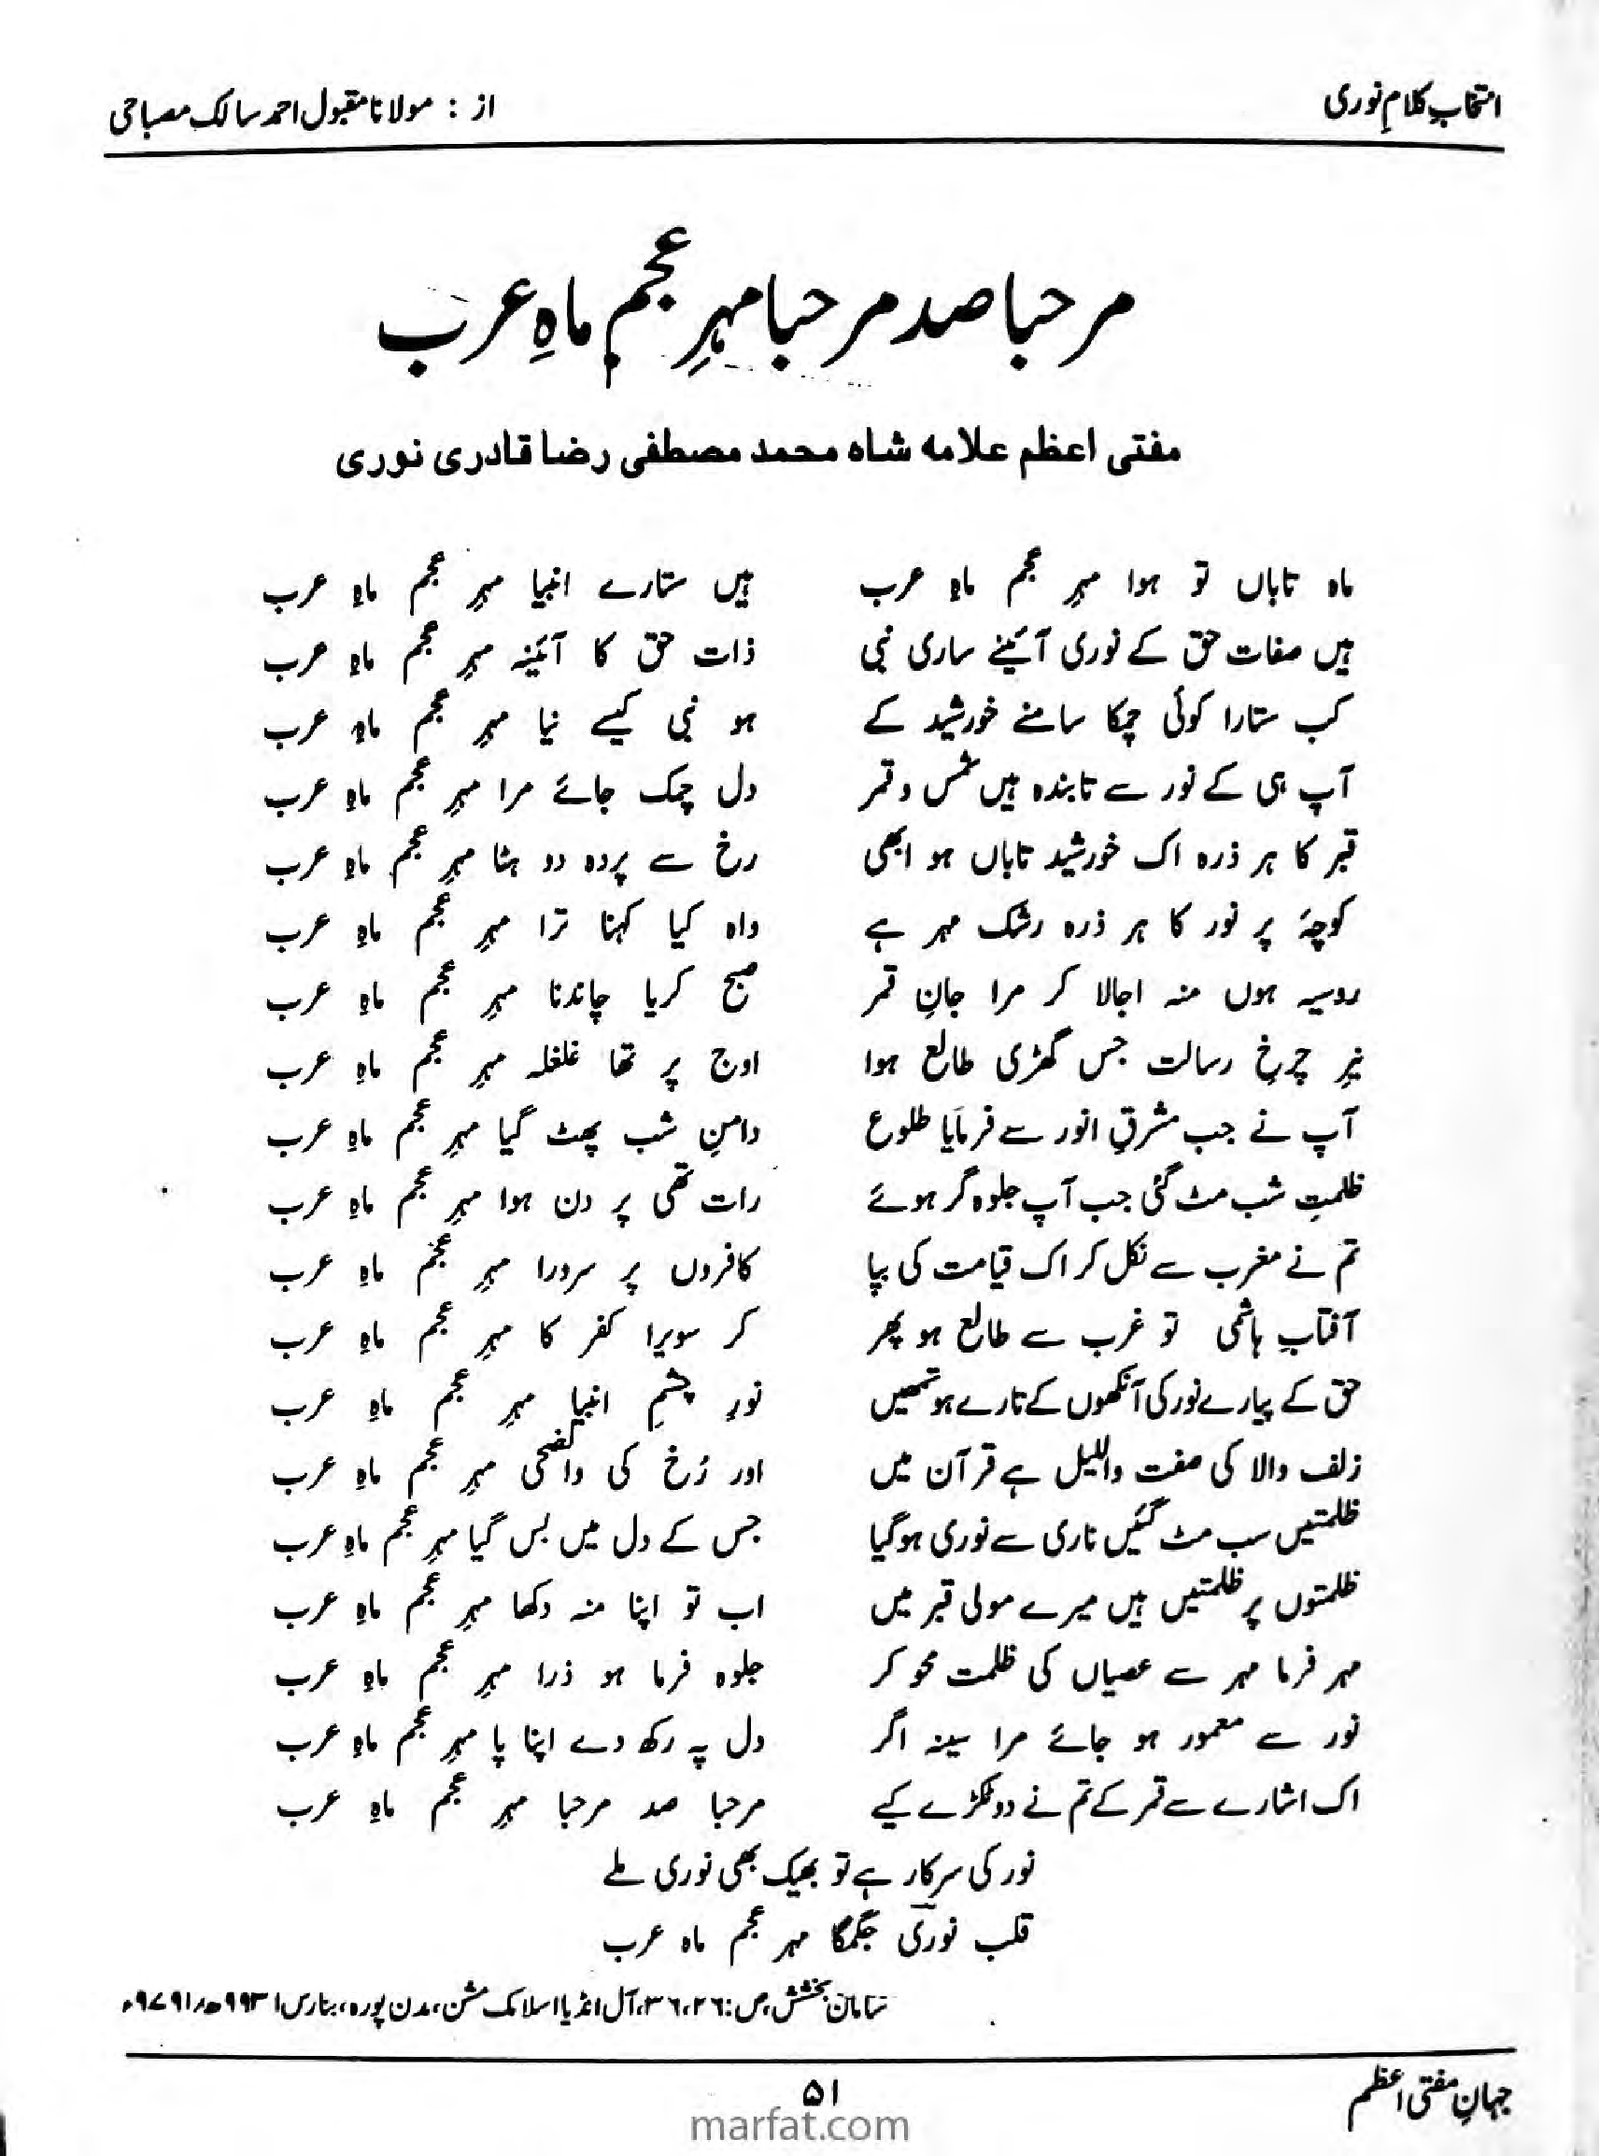 انتخابِ کلامِ نوری از : مولانا مقبول احمد سالک مصباحی
مرحبا صد مرحبا مہرِ عجم ماہِ عرب
مفتی اعظم علامہ شاہ محمد مصطفی رضا قادری نوری
ماہ تاباں تو ہوا مہرِ عجم ماہِ عرب ہیں ستارے انبیا مہرِ عجم ماہِ عرب
ہیں صفات حق کے نوری آئینے ساری نبی ذات حق کا آئینہ مہرِ عجم ماہِ عرب
کب ستارا کوئی چمکا سامنے خورشید کے ہو نبی کیسے نیا مہرِ عجم ماہِ عرب
آپ ہی کے نور سے تابندہ ہیں شمس و قمر دل چمک جائے مرا مہرِ عجم ماہِ عرب
قبر کا ہر ذرہ اک خورشید تاباں ہو ابھی رخ سے پردہ دو ہٹا مہرِ عجم ماہِ عرب
کوچۂ پر نور کا ہر ذرہ رشک مہر ہے واہ کیا کہنا ترا مہرِ عجم ماہِ عرب
روسیہ ہوں منہ اجالا کر مرا جانِ قمر صبح کریا چاندنا مہرِ عجم ماہِ عرب
نیرِ چرخِ رسالت جس گھڑی طالع ہوا اوج پر تھا غلغلہ مہرِ عجم ماہِ عرب
آپ نے جب مشرقِ انور سے فرمایا طلوع دامنِ شب پھٹ گیا مہرِ عجم ماہِ عرب
ظلمتِ شب مٹ گئی جب آپ جلوہ گر ہوئے رات تھی پر دن ہوا مہرِ عجم ماہِ عرب
تم نے مغرب سے نکل کر اک قیامت کی بپا کافروں پر سرورا مہرِ عجم ماہِ عرب
آفتابِ ہاشمی تو غرب سے طالع ہو پھر کر سویرا کفر کا مہرِ عجم ماہِ عرب
حق کے پیارے نور کی آنکھوں کے تارے ہو تمھیں نورِ چشمِ انبیا مہرِ عجم ماہِ عرب
زلف والا کی صفت واللیل ہے قرآن میں اور رُخ کی والضحی مہرِ عجم ماہِ عرب
ظلمتیں سب مٹ گئیں ناری سے نوری ہو گیا جس کے دل میں بس گیا مہرِ عجم ماہِ عرب
ظلمتوں پر ظلمتیں ہیں میرے مولی قبر میں اب تو اپنا منہ دکھا مہرِ عجم ماہِ عرب
مہر فرما مہر سے عصیاں کی ظلمت محو کر جلوہ فرما ہو ذرا مہرِ عجم ماہِ عرب
نور سے معمور ہو جائے مرا سینہ اگر دل پہ رکھ دے اپنا پا مہرِ عجم ماہِ عرب
اک اشارے سے قمر کے تم نے دو ٹکڑے کیے مرحبا صد مرحبا مہرِ عجم ماہِ عرب
نور کی سرکار ہے تو بھیک بھی نوری ملے
قلب نوریؔ جگمگا مہر عجم ماہ عرب
سامان بخشش، ص: ۲۶، ۳۶، آل انڈیا اسلامک مشن، مدن پورہ، بنارس ۱۹۹۳ھ ۹۷۹۱ء
جہانِ مفتی اعظم
۵۱
marfat.com